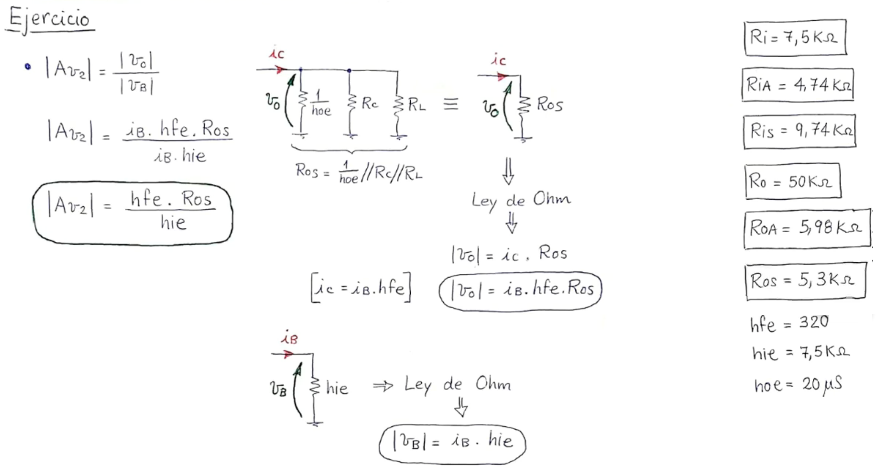 Ejercicio
• |Av2| = |vo| / |vB|
|Av2| = iB . hfe . Ros / iB . hie
|Av2| = hfe . Ros / hie
ic
vo
1/hoe
Rc
RL
≡
ic
vo
Ros
Ros = 1/hoe // Rc // RL
⇓
Ley de Ohm
⇓
|vo| = ic . Ros
[ic = iB . hfe]
|vo| = iB . hfe . Ros
iB
vB
hie
⇒ Ley de Ohm
⇓
|vB| = iB . hie
Ri = 7,5 KΩ
RiA = 4,74 KΩ
Ris = 9,74 KΩ
Ro = 50 KΩ
RoA = 5,98 KΩ
Ros = 5,3 KΩ
hfe = 320
hie = 7,5 KΩ
hoe = 20 μS